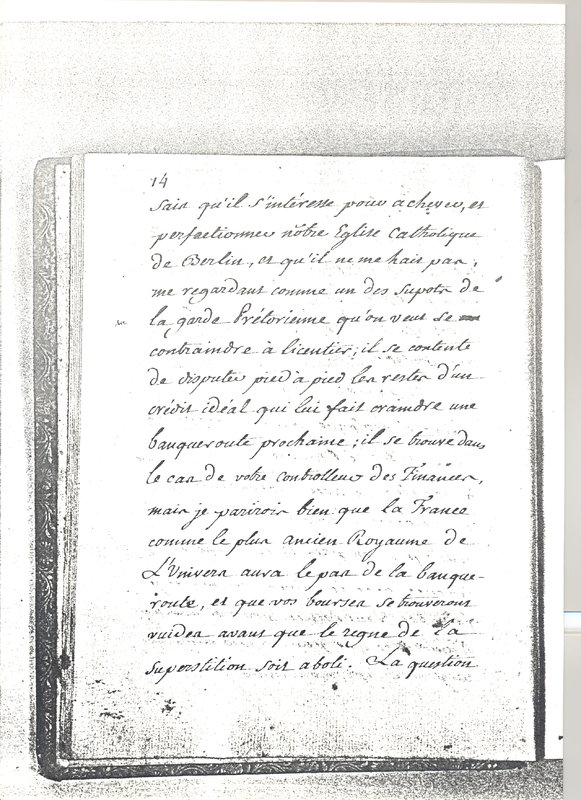 14
Sais qu'il s'intéresse pour achever, et
perfectionner nôtre Eglise Catholique
de Berlin, et qu'il ne me hait pas,
me regardant comme un des Supots de
la garde Prétorienne qu'on veut se
contraindre à licentier; il se contente
de disputer pied à pied les restes d'un
crédit idéal qui lui fait craindre une
banqueroute prochaine; il se trouve dans
le cas de votre controlleur des Finances,
mais je parirois bien que la France
comme le plus ancien Royaume de
L'Univers aura le pas de la banque-
route, et que vos bourses se trouveront
vuides avant que le regne de la
Superstition soit aboli. La question